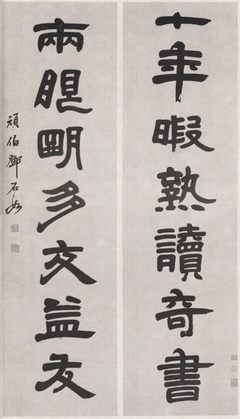 十年暇熟讀奇書
兩眼朙多交益友
頑伯鄧石如